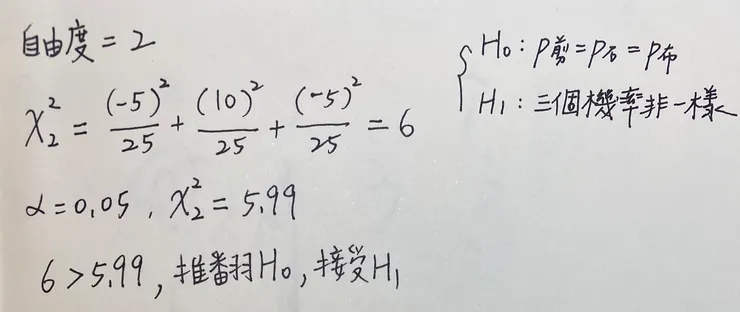 自由度 = 2
χ₂² = (-5)²/25 + (10)²/25 + (-5)²/25 = 6
α = 0.05 , χ₂² = 5.99
6 > 5.99 , 推翻H₀ , 接受H₁
{ H₀ : P剪 = P石 = P布
H₁ : 三個機率非一樣